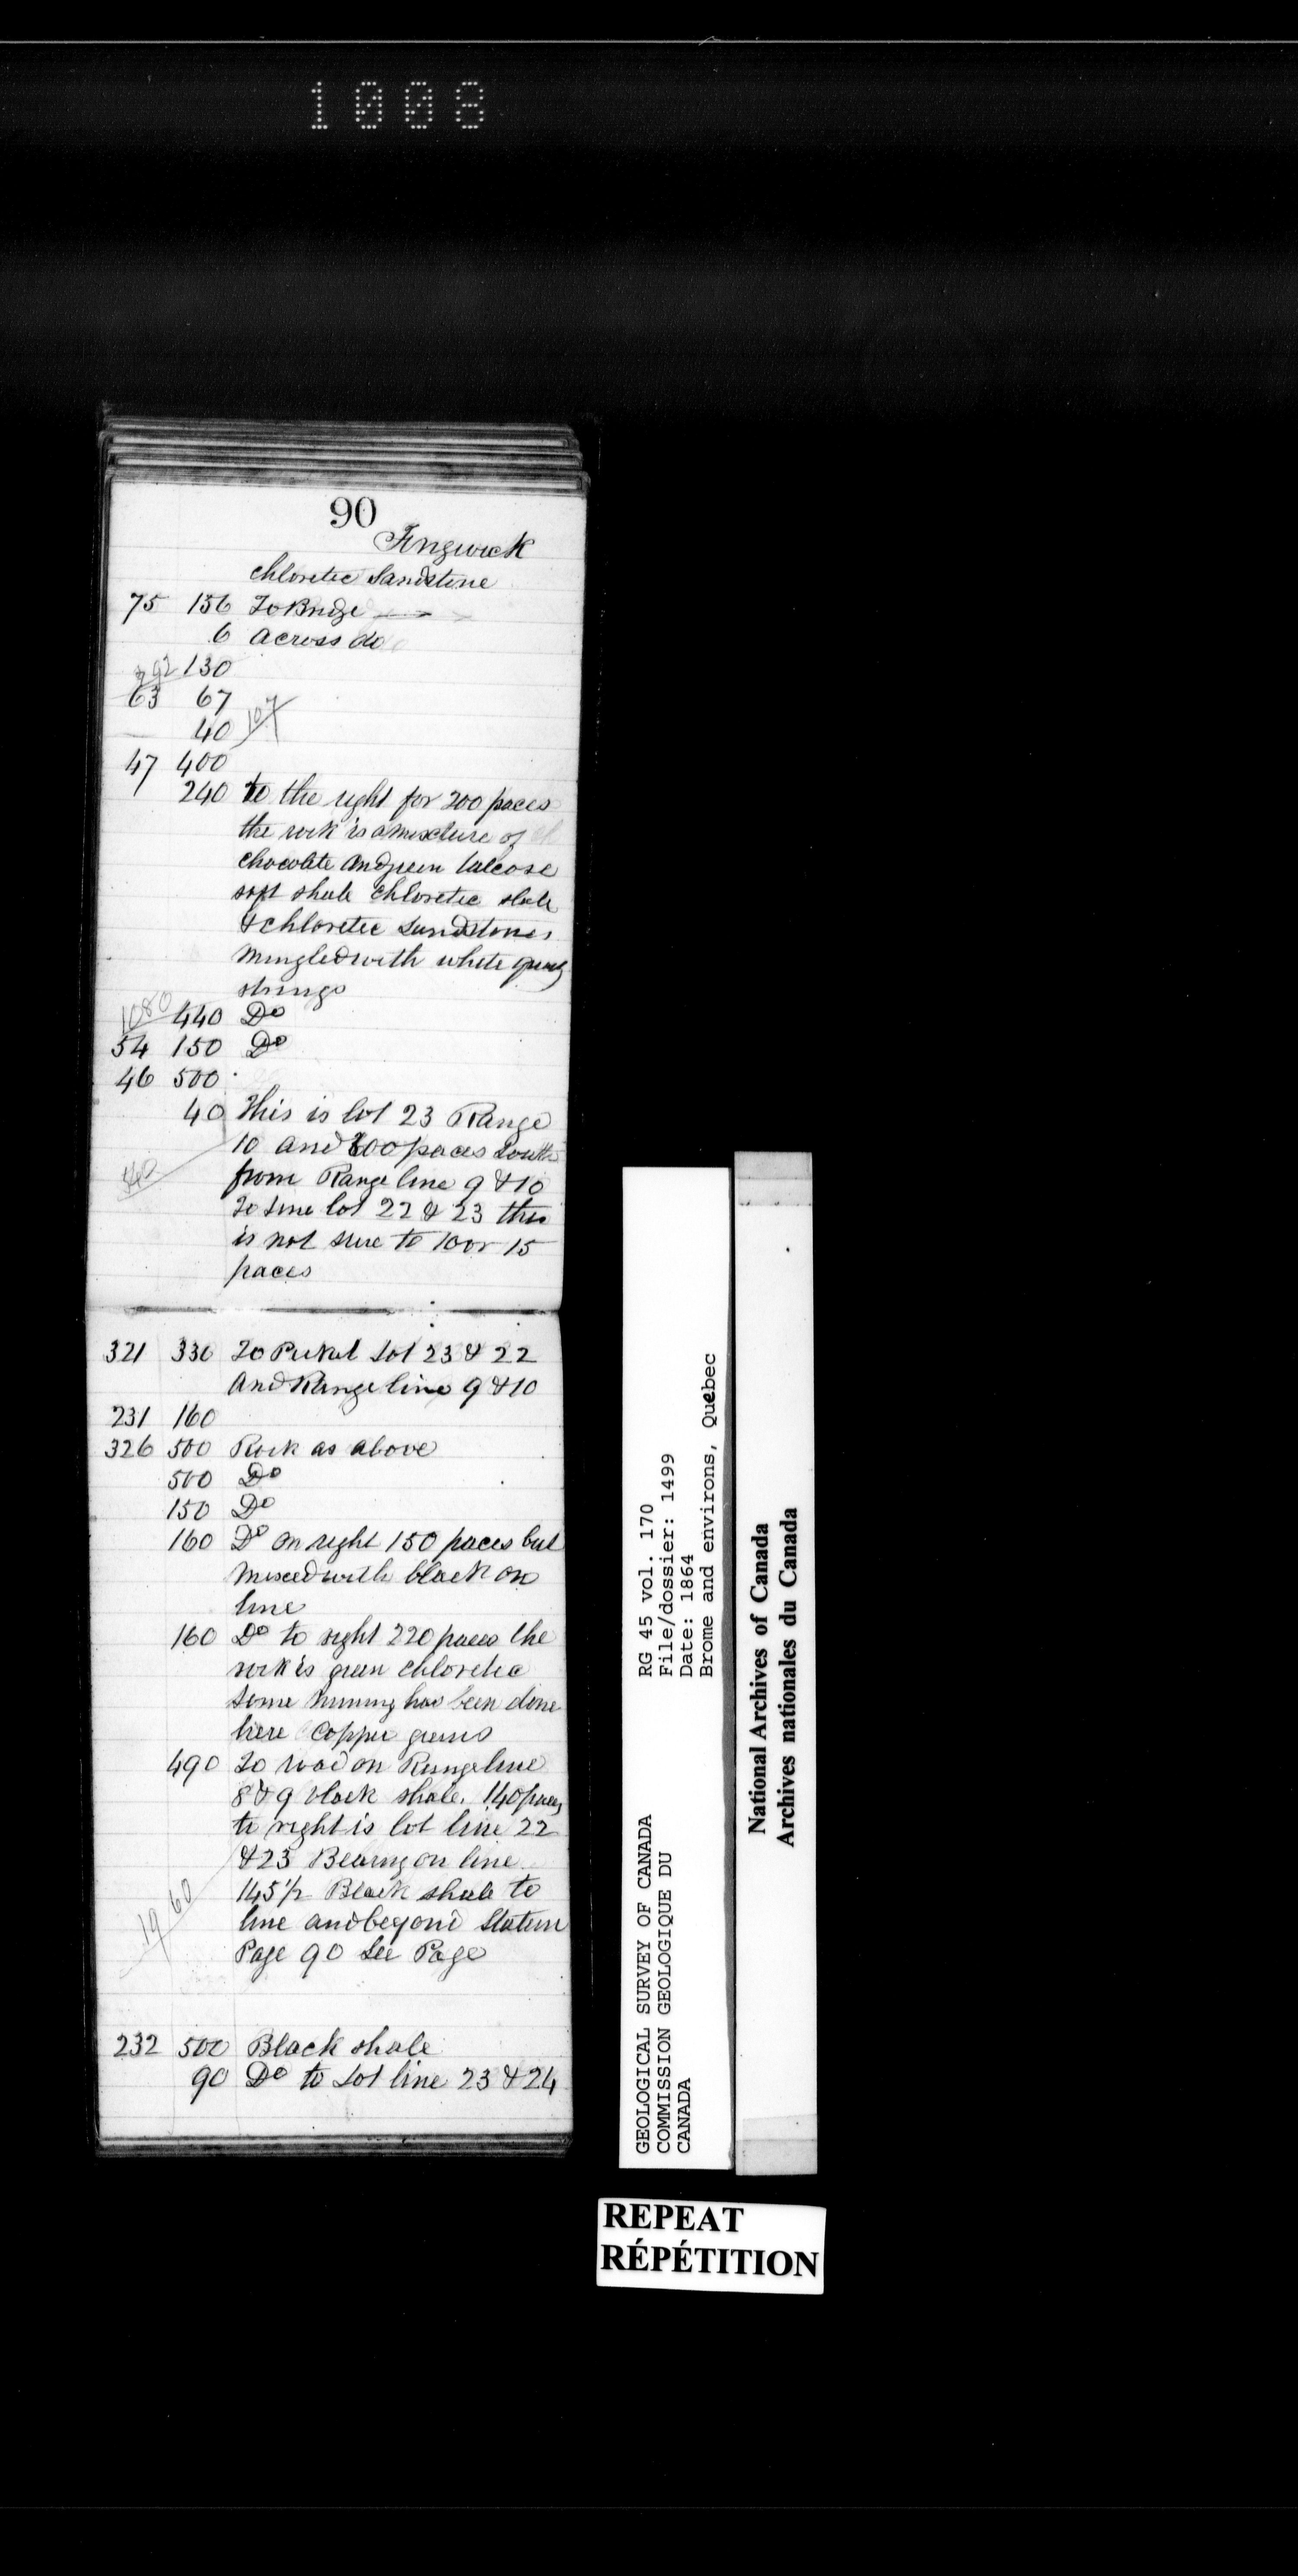 1008
90
Tingwick
chloretic Sandstone
75 136 To Bridge
6 across do
292 130
63 67
40 107
47 400
240 to the right for 200 paces
the rock is a mixture of
chocolate and green talcose
soft shale chloretic slate
& chloretic Sandstones
mingled with white quartz
strings
1080 440 Do
54 150 Do
46 500
40 This is lot 23 Range
10 and 200 paces South
540 from Range line 9 & 10
To Line lot 22 & 23 this
is not sure to 10 or 15
paces
321 330 To Picket Lot 23 & 22
and Range line 9 & 10
231 160
326 500 Rock as above
500 Do
150 Do
160 Do on right 150 paces but
mixed with black on
line
160 Do to right 220 paces the
rock is green chloretic
some mining has been done
here Copper greens
490 To road on Range line
8 & 9 black shale. 140 paces
to right is lot line 22
& 23 Bearing on line
1960 145 1/2 Black shale to
line and beyond Station
Page 90 See Page
232 500 Black shale
90 Do to Lot line 23 & 24
GEOLOGICAL SURVEY OF CANADA
COMMISSION GEOLOGIQUE DU
CANADA
RG 45 vol. 170
File/dossier: 1499
Date: 1864
Brome and environs, Quebec
National Archives of Canada
Archives nationales du Canada
REPEAT
RÉPÉTITION